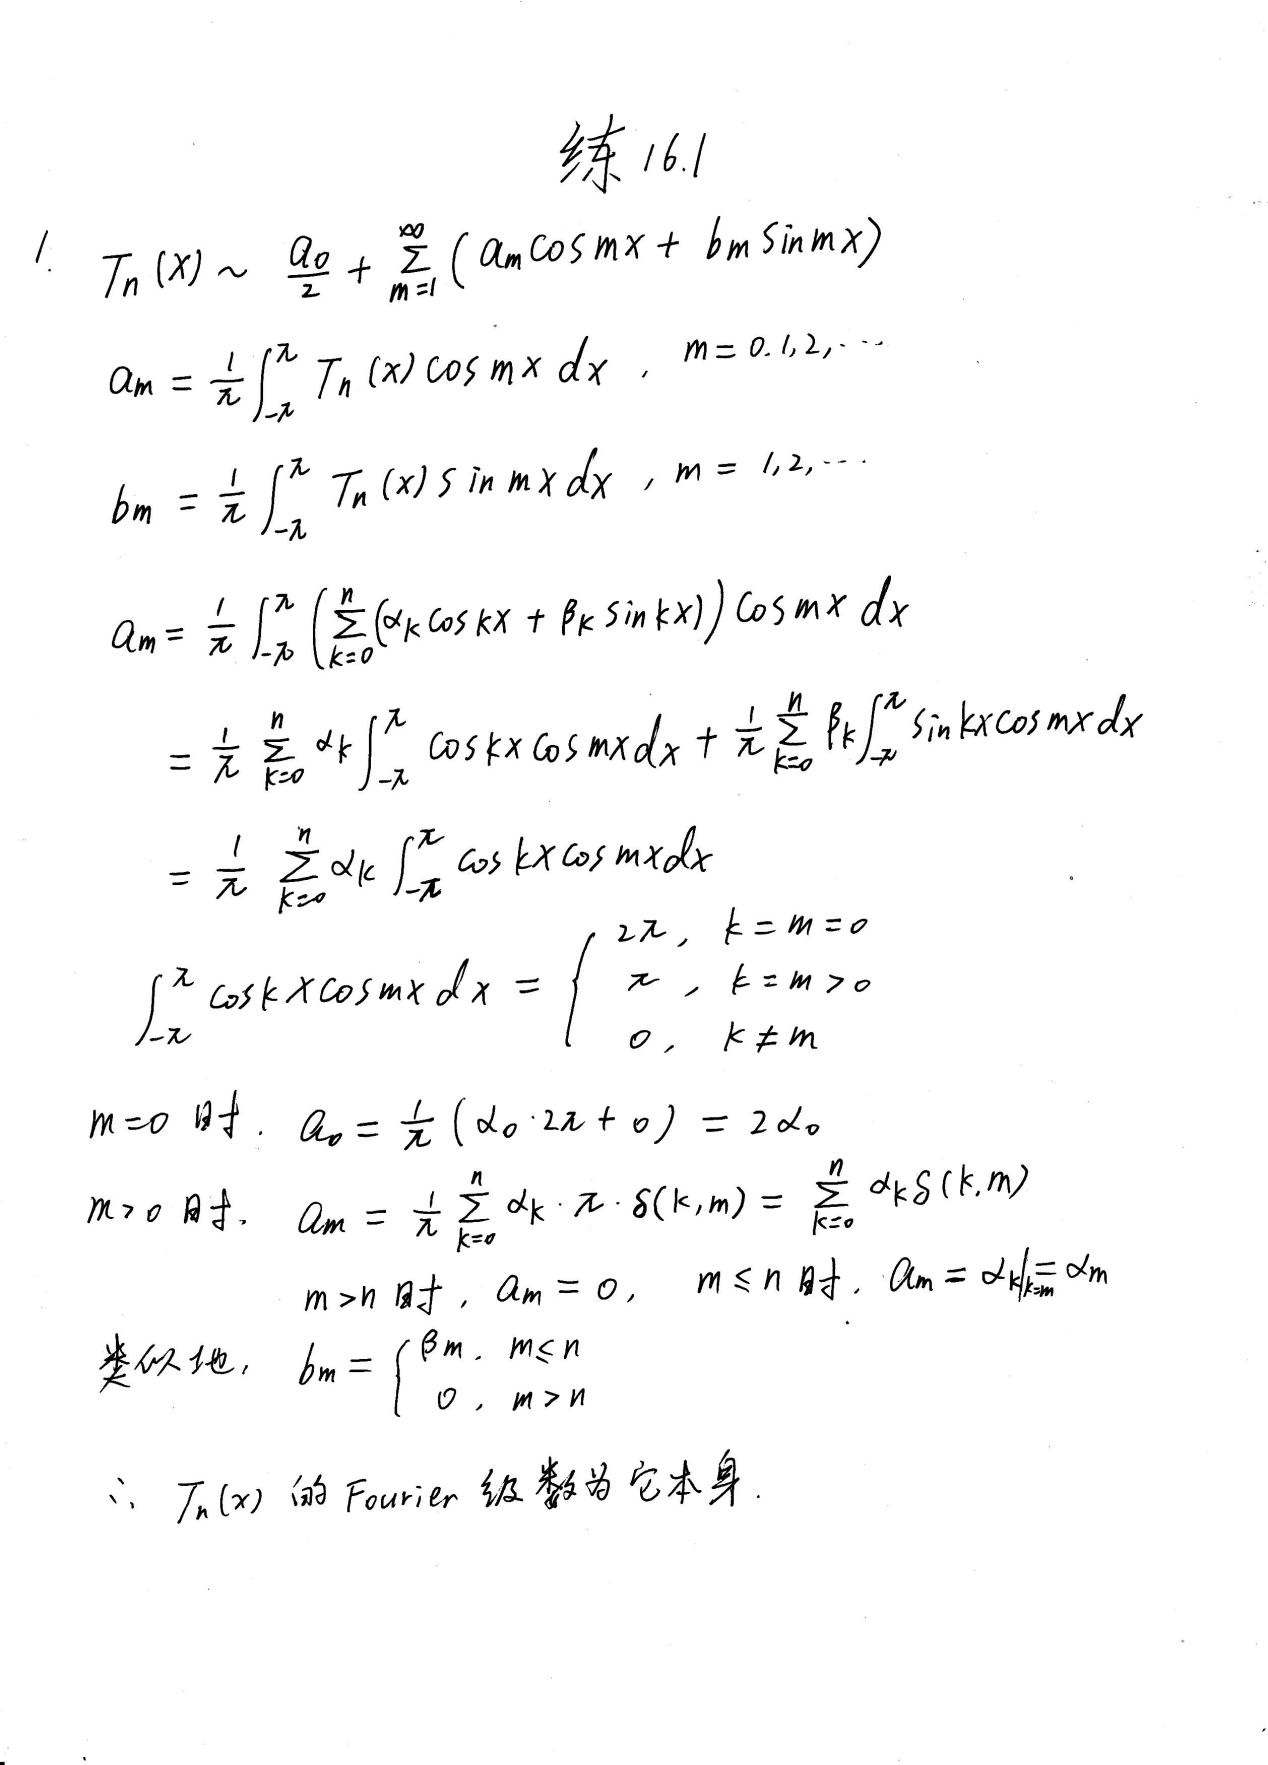 练 16.1
1. Tn(x) ~ a0/2 + ∑_{m=1}^{∞} (am cos mx + bm sin mx)
am = 1/π ∫_{-π}^{π} Tn(x) cos mx dx , m = 0.1,2,···
bm = 1/π ∫_{-π}^{π} Tn(x) sin mx dx , m = 1,2,···
am = 1/π ∫_{-π}^{π} (∑_{k=0}^{n} (αk cos kx + βk sin kx)) cos mx dx
= 1/π ∑_{k=0}^{n} αk ∫_{-π}^{π} cos kx cos mx dx + 1/π ∑_{k=0}^{n} βk ∫_{-π}^{π} sin kx cos mx dx
= 1/π ∑_{k=0}^{n} αk ∫_{-π}^{π} cos kx cos mx dx
∫_{-π}^{π} cos kx cos mx dx = { 2π, k = m = 0
π, k = m > 0
0, k ≠ m
m=0 时. a0 = 1/π (α0·2π + 0) = 2α0
m>0 时. am = 1/π ∑_{k=0}^{n} αk · π · δ(k,m) = ∑_{k=0}^{n} αk δ(k,m)
m>n 时, am = 0, m ≤ n 时. am = αk|_{k=m} = αm
类似地, bm = { βm. m≤n
0, m>n
∴ Tn(x) 的 Fourier 级数为它本身.